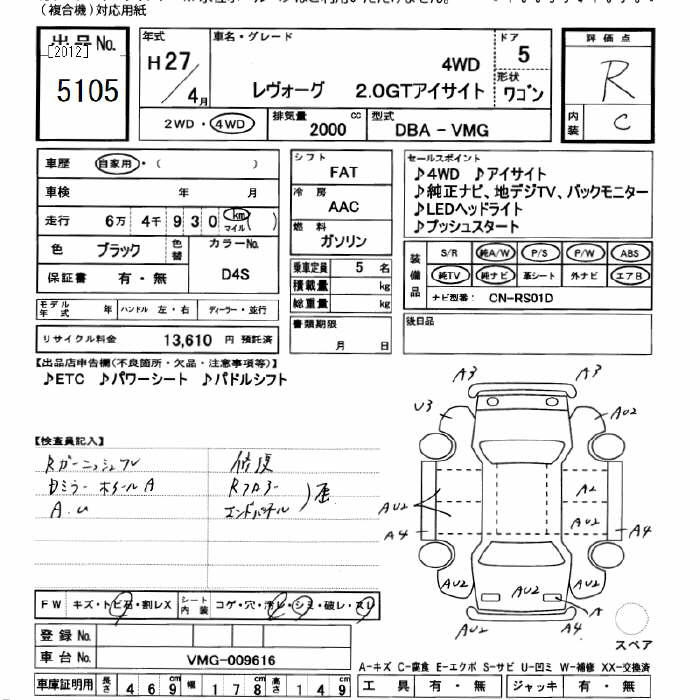 (複合機)対応用紙
出品No.
[2012]
5105
年式
H27
/4月
車名・グレード
4WD
レヴォーグ 2.0GTアイサイト
ドア
5
形状
ワゴン
評価点
R
内装
C
2WD・4WD
排気量
2000 cc
型式
DBA-VMG
車歴 自家用・( )
車検 年 月
走行 6万 4千 930 km マイル ( )
色 ブラック 色替 カラーNo.
D4S
保証書 有・無
モデル年式 年 ハンドル 左・右 ディーラー・並行
リサイクル料金 13,610 円 預託済
シフト
FAT
冷房
AAC
燃料
ガソリン
乗車定員 5 名
積載量 kg
総重量 kg
書類期限
月 日
セールスポイント
♪4WD ♪アイサイト
♪純正ナビ、地デジTV、バックモニター
♪LEDヘッドライト
♪プッシュスタート
装備品
S/R 純A/W P/S P/W ABS
純TV 純ナビ 革シート 外ナビ エアB
ナビ型番: CN-RS01D
後日品
【出品店申告欄(不良箇所・欠品・注意事項等)】
♪ETC ♪パワーシート ♪パドルシフト
【検査員記入】
Rガーニッシュワレ
Dミラー ホイールA
A.U
修復
Rフロアー
エンドパネル
)歪
A3 A3
U3 AU2
A2
AU2
A4 A4
AU2 AU2 AU2 A
AU2 A4
スペア
FW キズ・トビ石・割レX
シート内装 コゲ・穴・汚レ・シミ・破レ・スレ
登録No.
車台No. VMG-009616
車庫証明用 長さ 469 cm 幅 178 cm 高さ 149 cm
A-キズ C-腐食 E-エクボ S-サビ U-凹ミ W-補修 XX-交換済
工具 有・無 ジャッキ 有・無